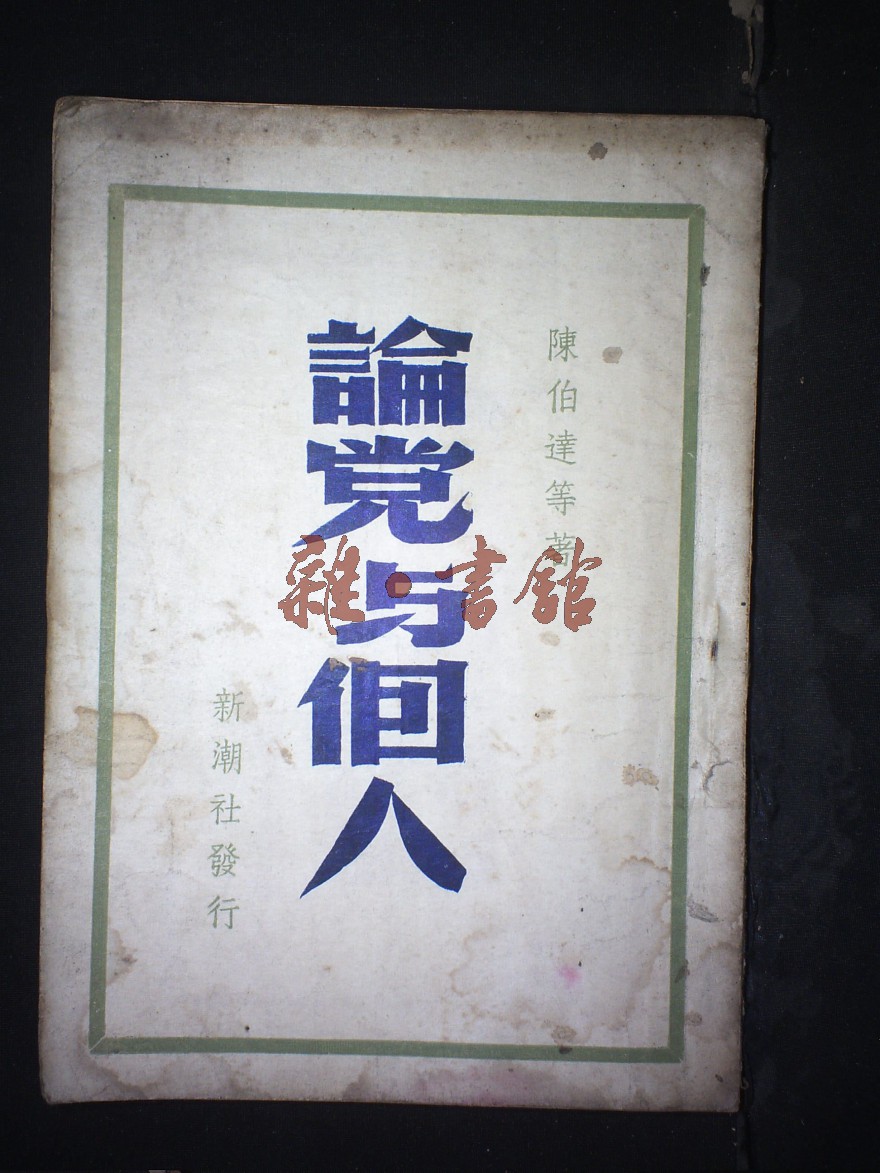 陳伯達等著
論党与個人
新潮社發行
雜·書館